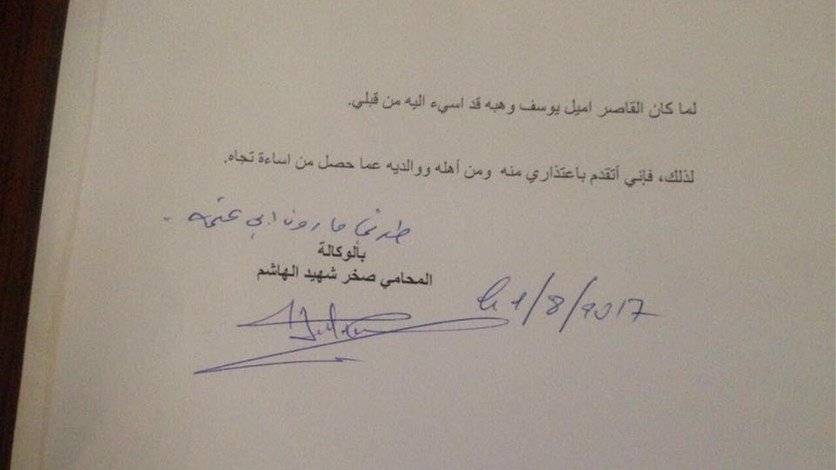 لما كان القاصر اميل يوسف وهبه قد اسيء اليه من قبلي.
لذلك، فإني أتقدم باعتذاري منه ومن أهله ووالديه عما حصل من اساءة تجاه.
مارون ابي
بألوكالة
المحامي صخر شهيد الهاشم
le 1/8/2017